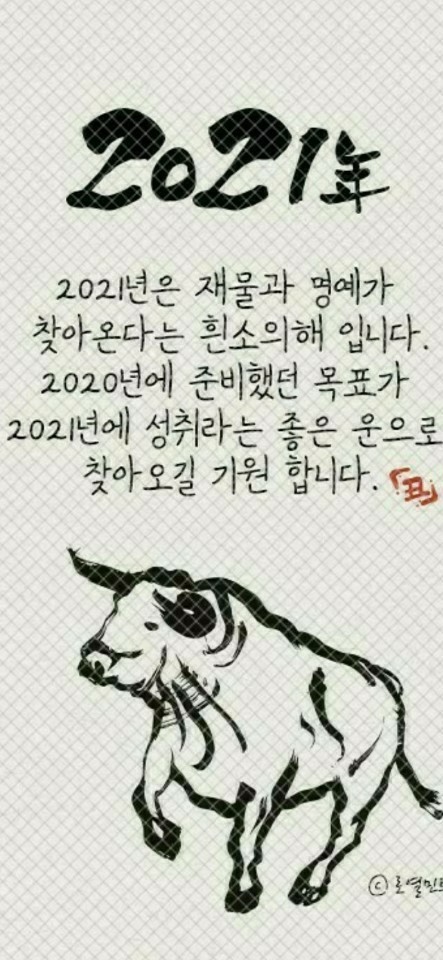 2021年
2021년은 재물과 명예가
찾아온다는 흰소의해 입니다.
2020년에 준비했던 목표가
2021년에 성취라는 좋은 운으로
찾아오길 기원 합니다.
「丑」
ⓒ